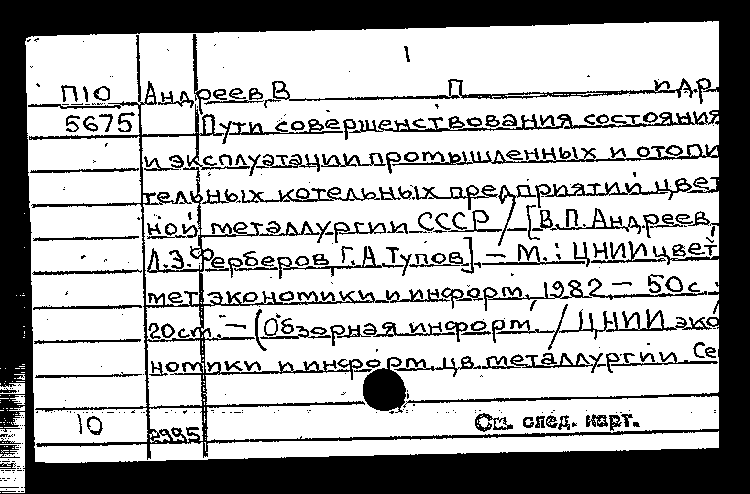 1
П10 Андреев, В П и др.
5675 Пути совершенствования состояния
и эксплуатации промышленных и отопи
тельных котельных предприятий цвет
ной металлургии СССР / [В.П. Андреев,
Л.Э. Ферберов, Г.А. Тупов]. — М.: ЦНИИцвет
мет экономики и информ., 1982 — 50с.;
20см. — (Обзорная информ. / ЦНИИ эко
номики и информ. цв. металлургии. Се
10 2995 См. след. карт.